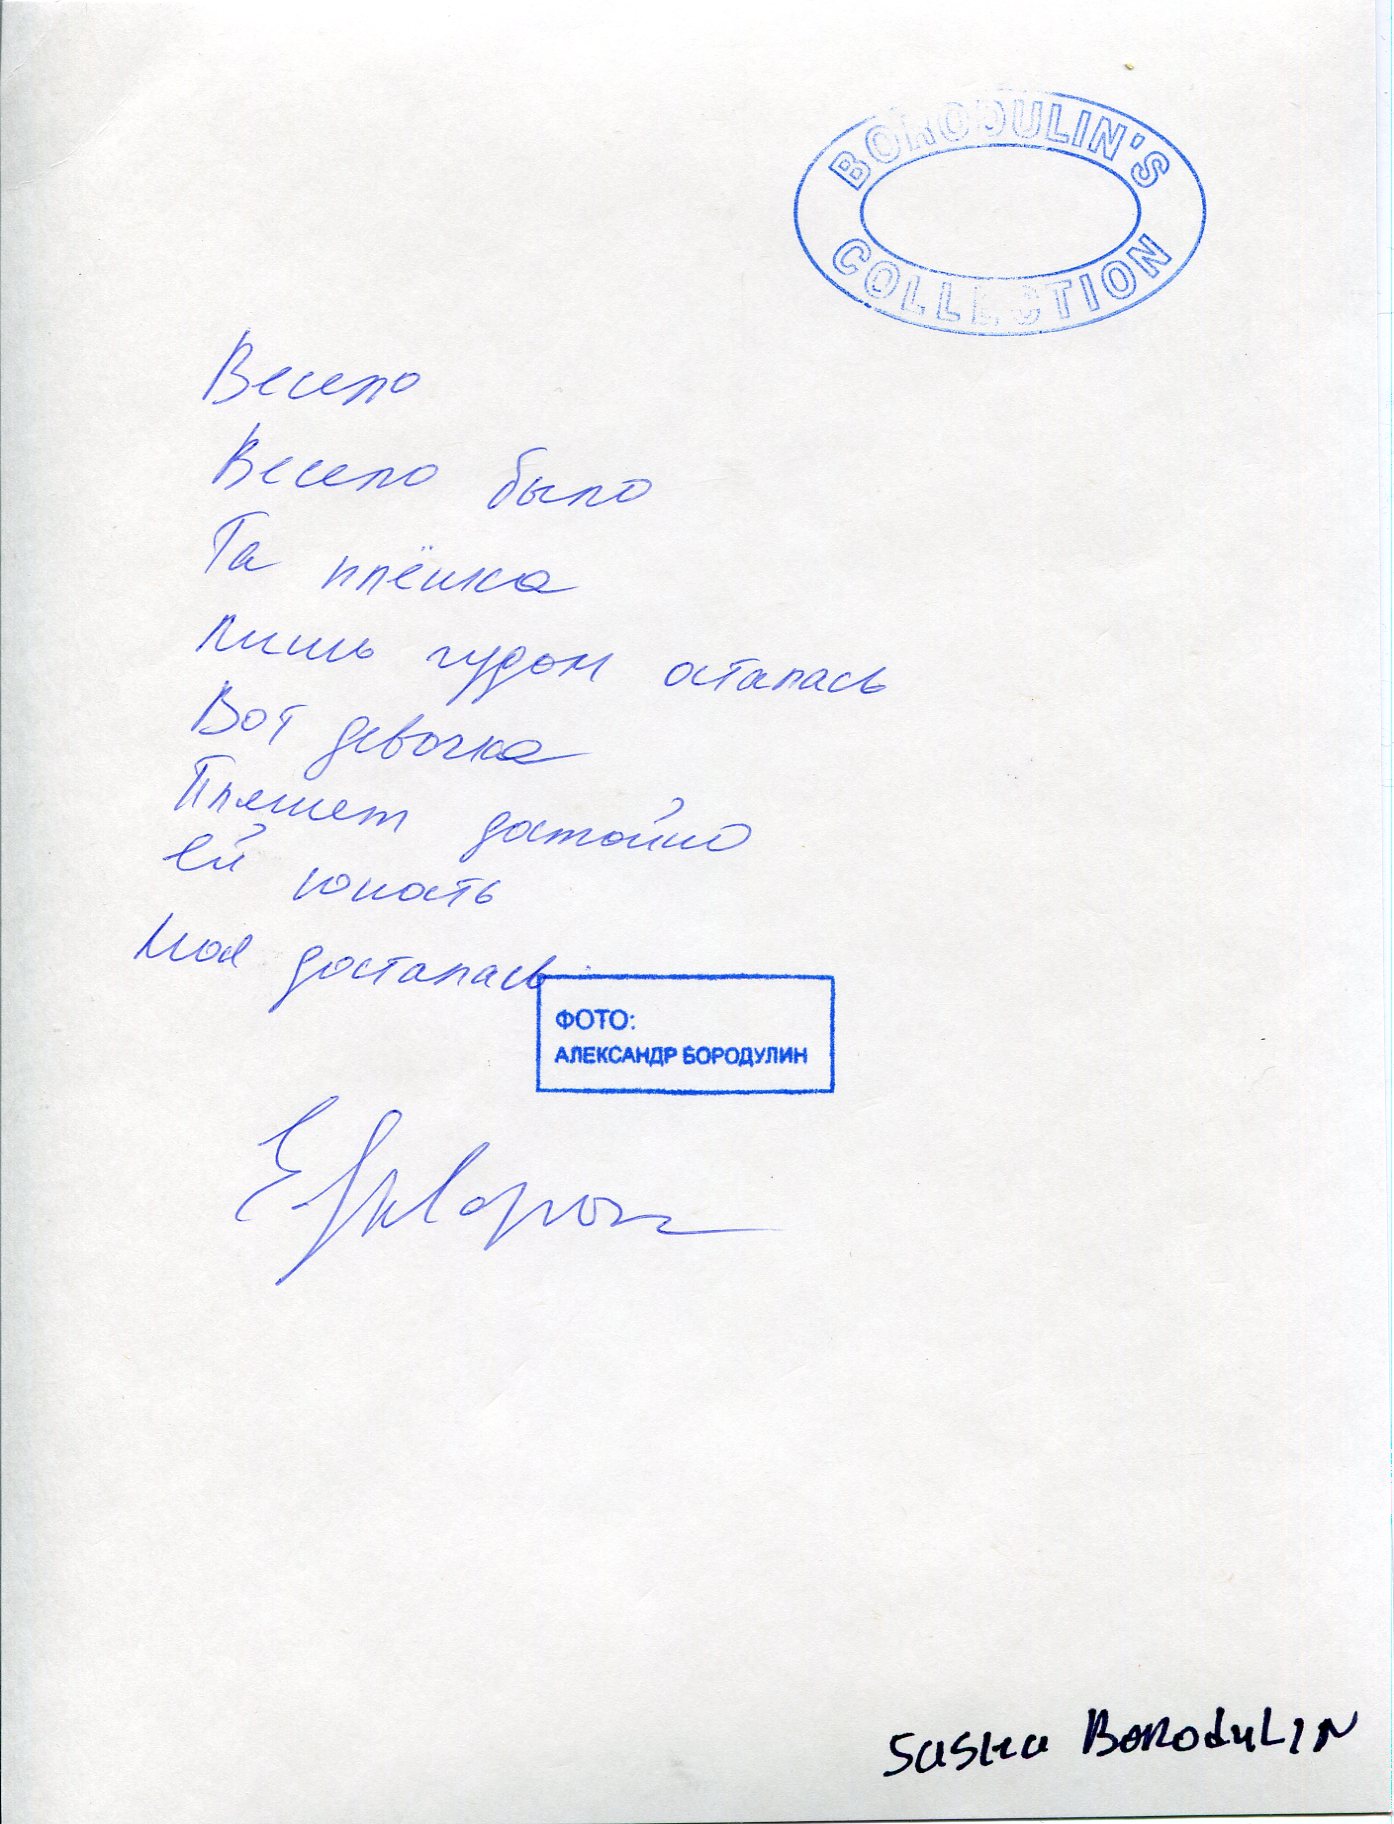 BORODULIN'S
COLLECTION
Весело
Весело было
Та плёнка
лишь чудом осталась
Вот девочка
Пляшет достойно
ей юность
Моя досталась.
ФОТО:
АЛЕКСАНДР БОРОДУЛИН
Sasha BORODULIN